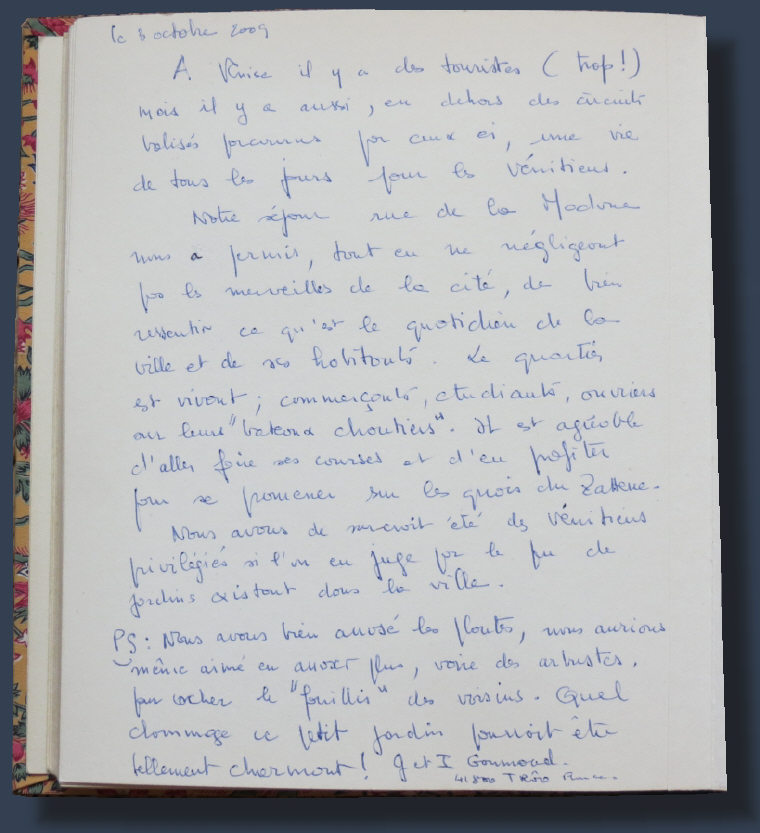 le 8 octobre 2009
A Venise il y a des touristes ( trop ! )
mais il y a aussi, en dehors des circuits
balisés parcourus par ceux ci, une vie
de tous les jours pour les vénitiens.
Notre séjour rue de la Madone
nous a permis, tout en ne négligeant
pas les merveilles de la cité, de bien
ressentir ce qu'est le quotidien de la
ville et de ses habitants. Le quartier
est vivant ; commerçants, étudiants, ouvriers
sur leurs "bateaux chantiers". Il est agréable
d'aller faire ses courses et d'en profiter
pour se promener sur les quais du Zattere.
Nous avons de surcroit été des Vénitiens
privilégiés si l'on en juge par le peu de
jardins existant dans la ville.
PS : Nous avons bien arrosé les plantes, nous aurions
même aimé en arroser plus, voire des arbustes,
pour cacher le "fouillis" des voisins. Quel
dommage ce petit jardin pourrait être
tellement charmant ! G et I
41800 Trôo France.